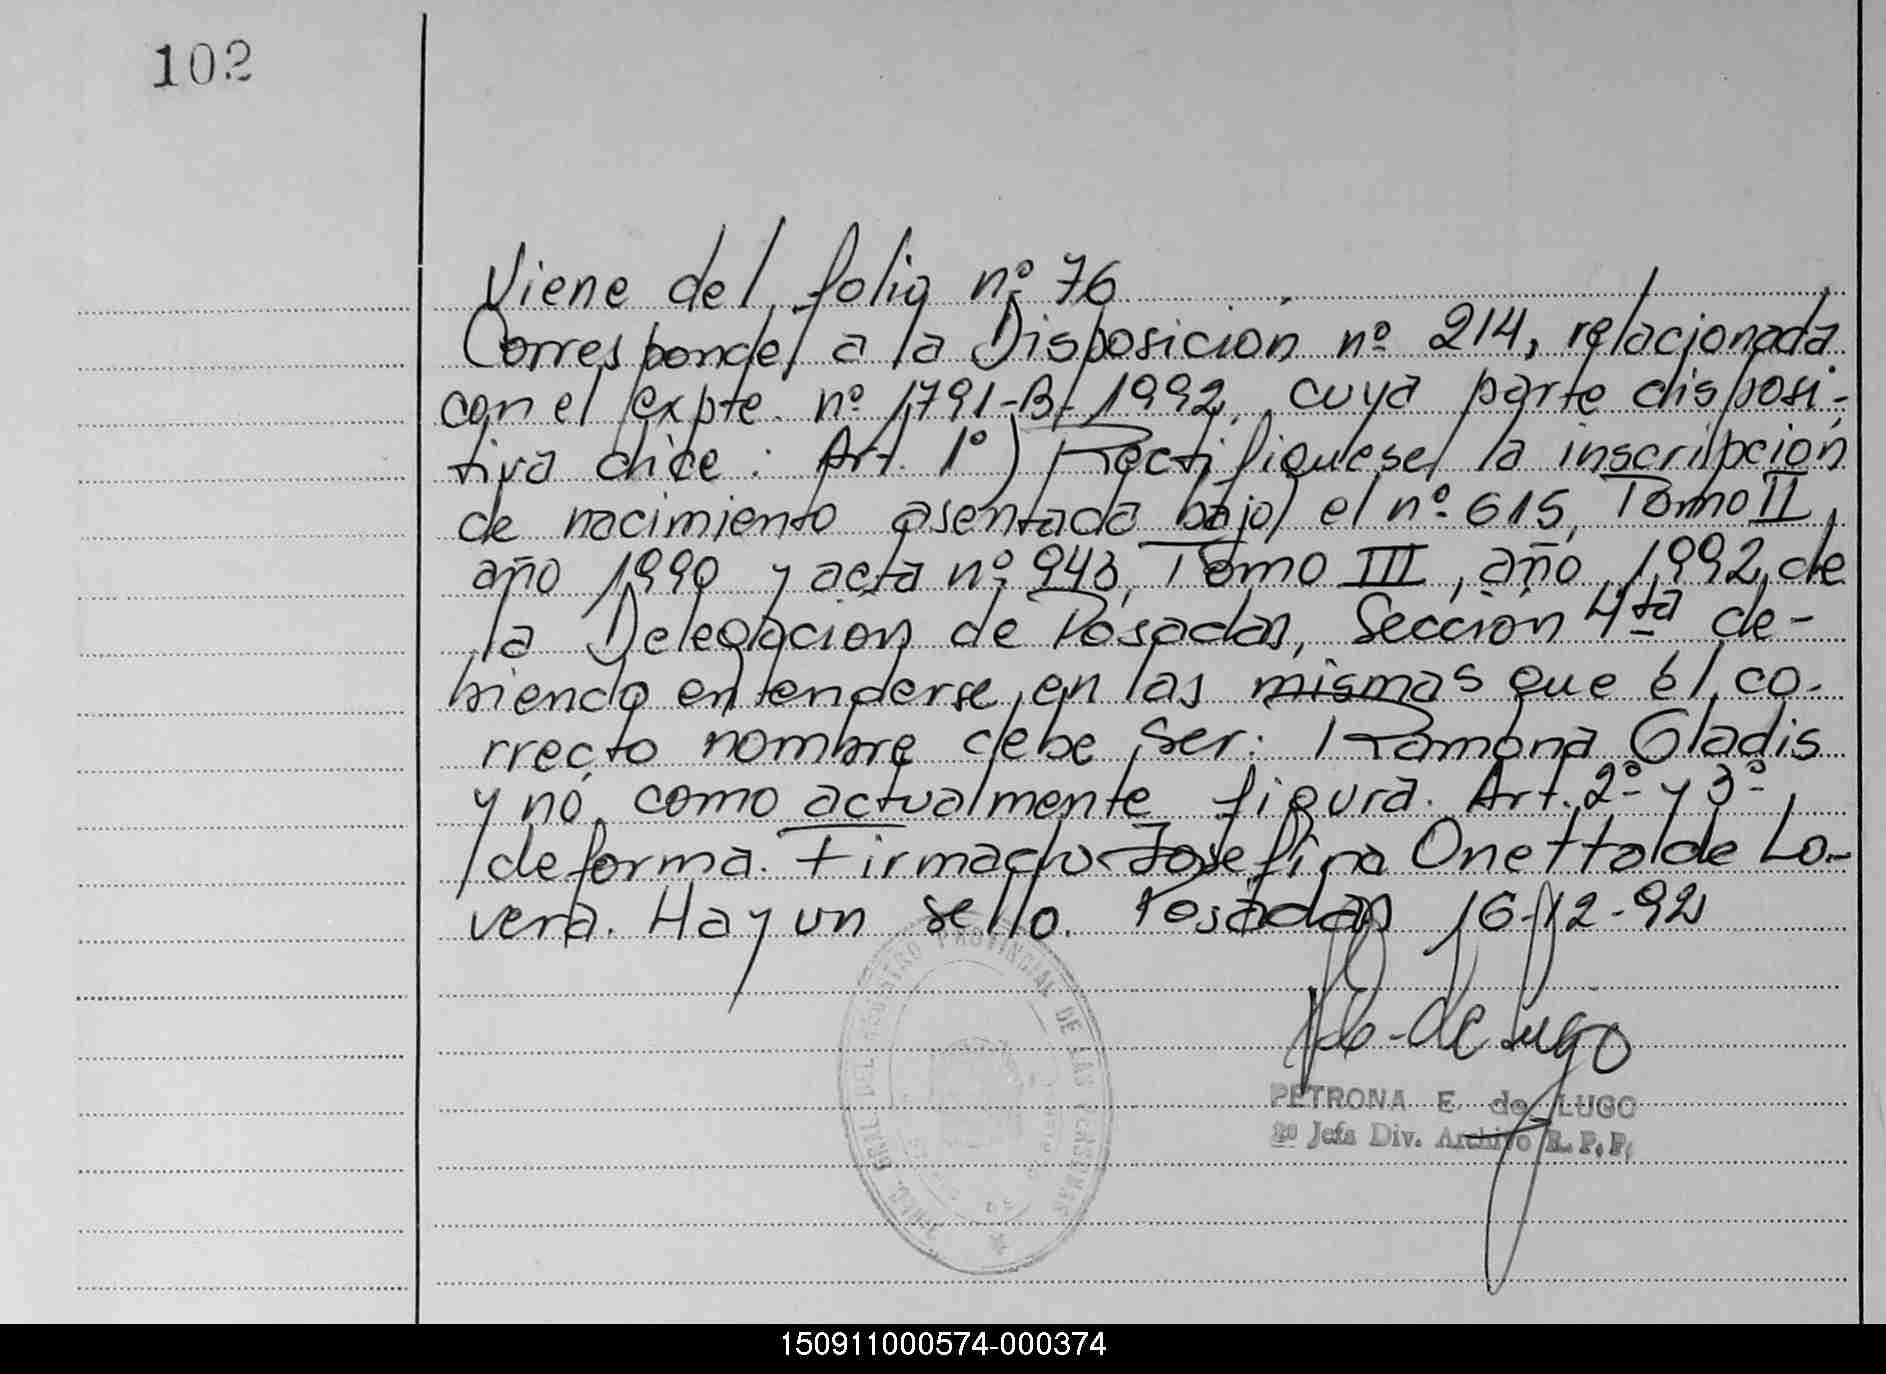 102
Viene del folio nº 76
Corresponde a la Disposición nº 214, relacionada
con el expte. nº 1791-B-1992, cuya parte disposi-
tiva dice: Art. 1º) Rectifiquese la inscripción
de nacimiento asentada bajo el nº 615, Tomo II,
año 1990 y acta nº 943, Tomo III, año 1992, de
la Delegación de Posadas, Sección 4ta de-
biendo entenderse en las mismas que él co-
rrecto nombre debe ser: Ramona Gladis
y no como actualmente figura. Art. 2º y 3º
de forma. Firmado Josefina Onetto de Lo-
vera. Hay un sello. Posadas 16-12-92
de Lugo
PETRONA E. de LUGO
2º Jefa Div. Archivo R. P. P.
GRAL. DEL REGISTRO PROVINCIAL DE LAS PERSONAS
150911000574-000374